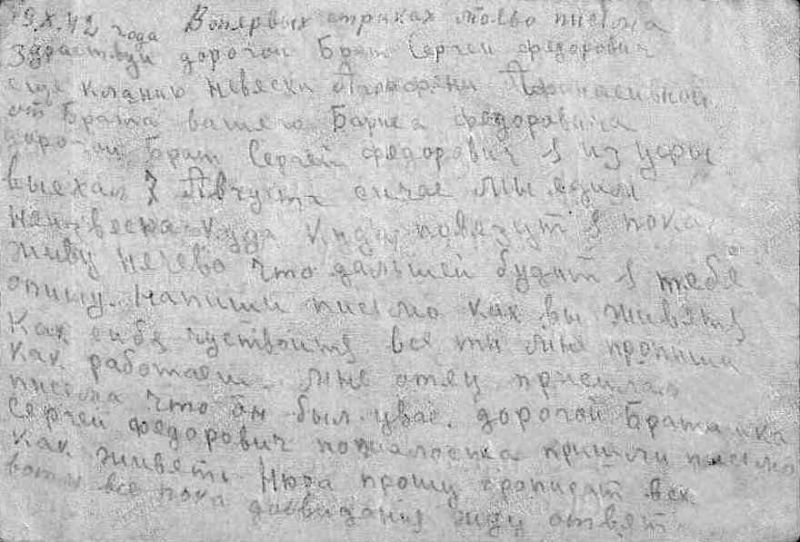 19.X.42 года Вопервых строках моево писма
Здраствуй дорогой Брат Сергей Федорович
еще кланию невески
от Брата вашего Федоровича
дорогой Брат Сергей Федорович я из
выехал 7 Августа сичас мы едим
куда куда повязут я пока
живу нечево что дальшей будит я тебе
опишу. Напиши писмо как вы живяте
Как сибя чуствоите все ты мне пропиши
как работаеш. мне отец присылал
писма что он был увас. дорогой Браташка
Сергей Федорович пожалоста пришли писмо
как живять Нюра прошу прописат всех
вот и все пока досвидания жду отвят